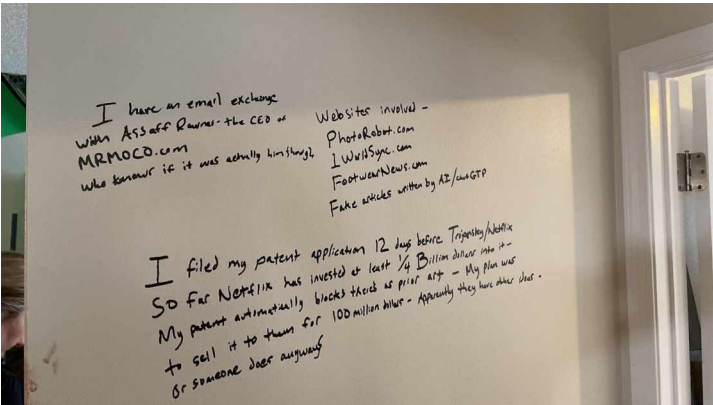 I have an email exchange
with Assaff Rawner - the CEO of
MRMOCO.com
who knows if it was actually him though,
Websites involved -
PhotoRobot.com
1WorldSync.com
FootwearNews.com
Fake articles written by AI/chatGTP
I filed my patent application 12 days before Tripensky/Netflix
So far Netflix has invested at least 1/4 Billion dollars into it -
My patent automatically blocks theirs as prior art - My plan was
to sell it to them for 100 million dollars - Apparently they have other ideas.
Or someone does anyways